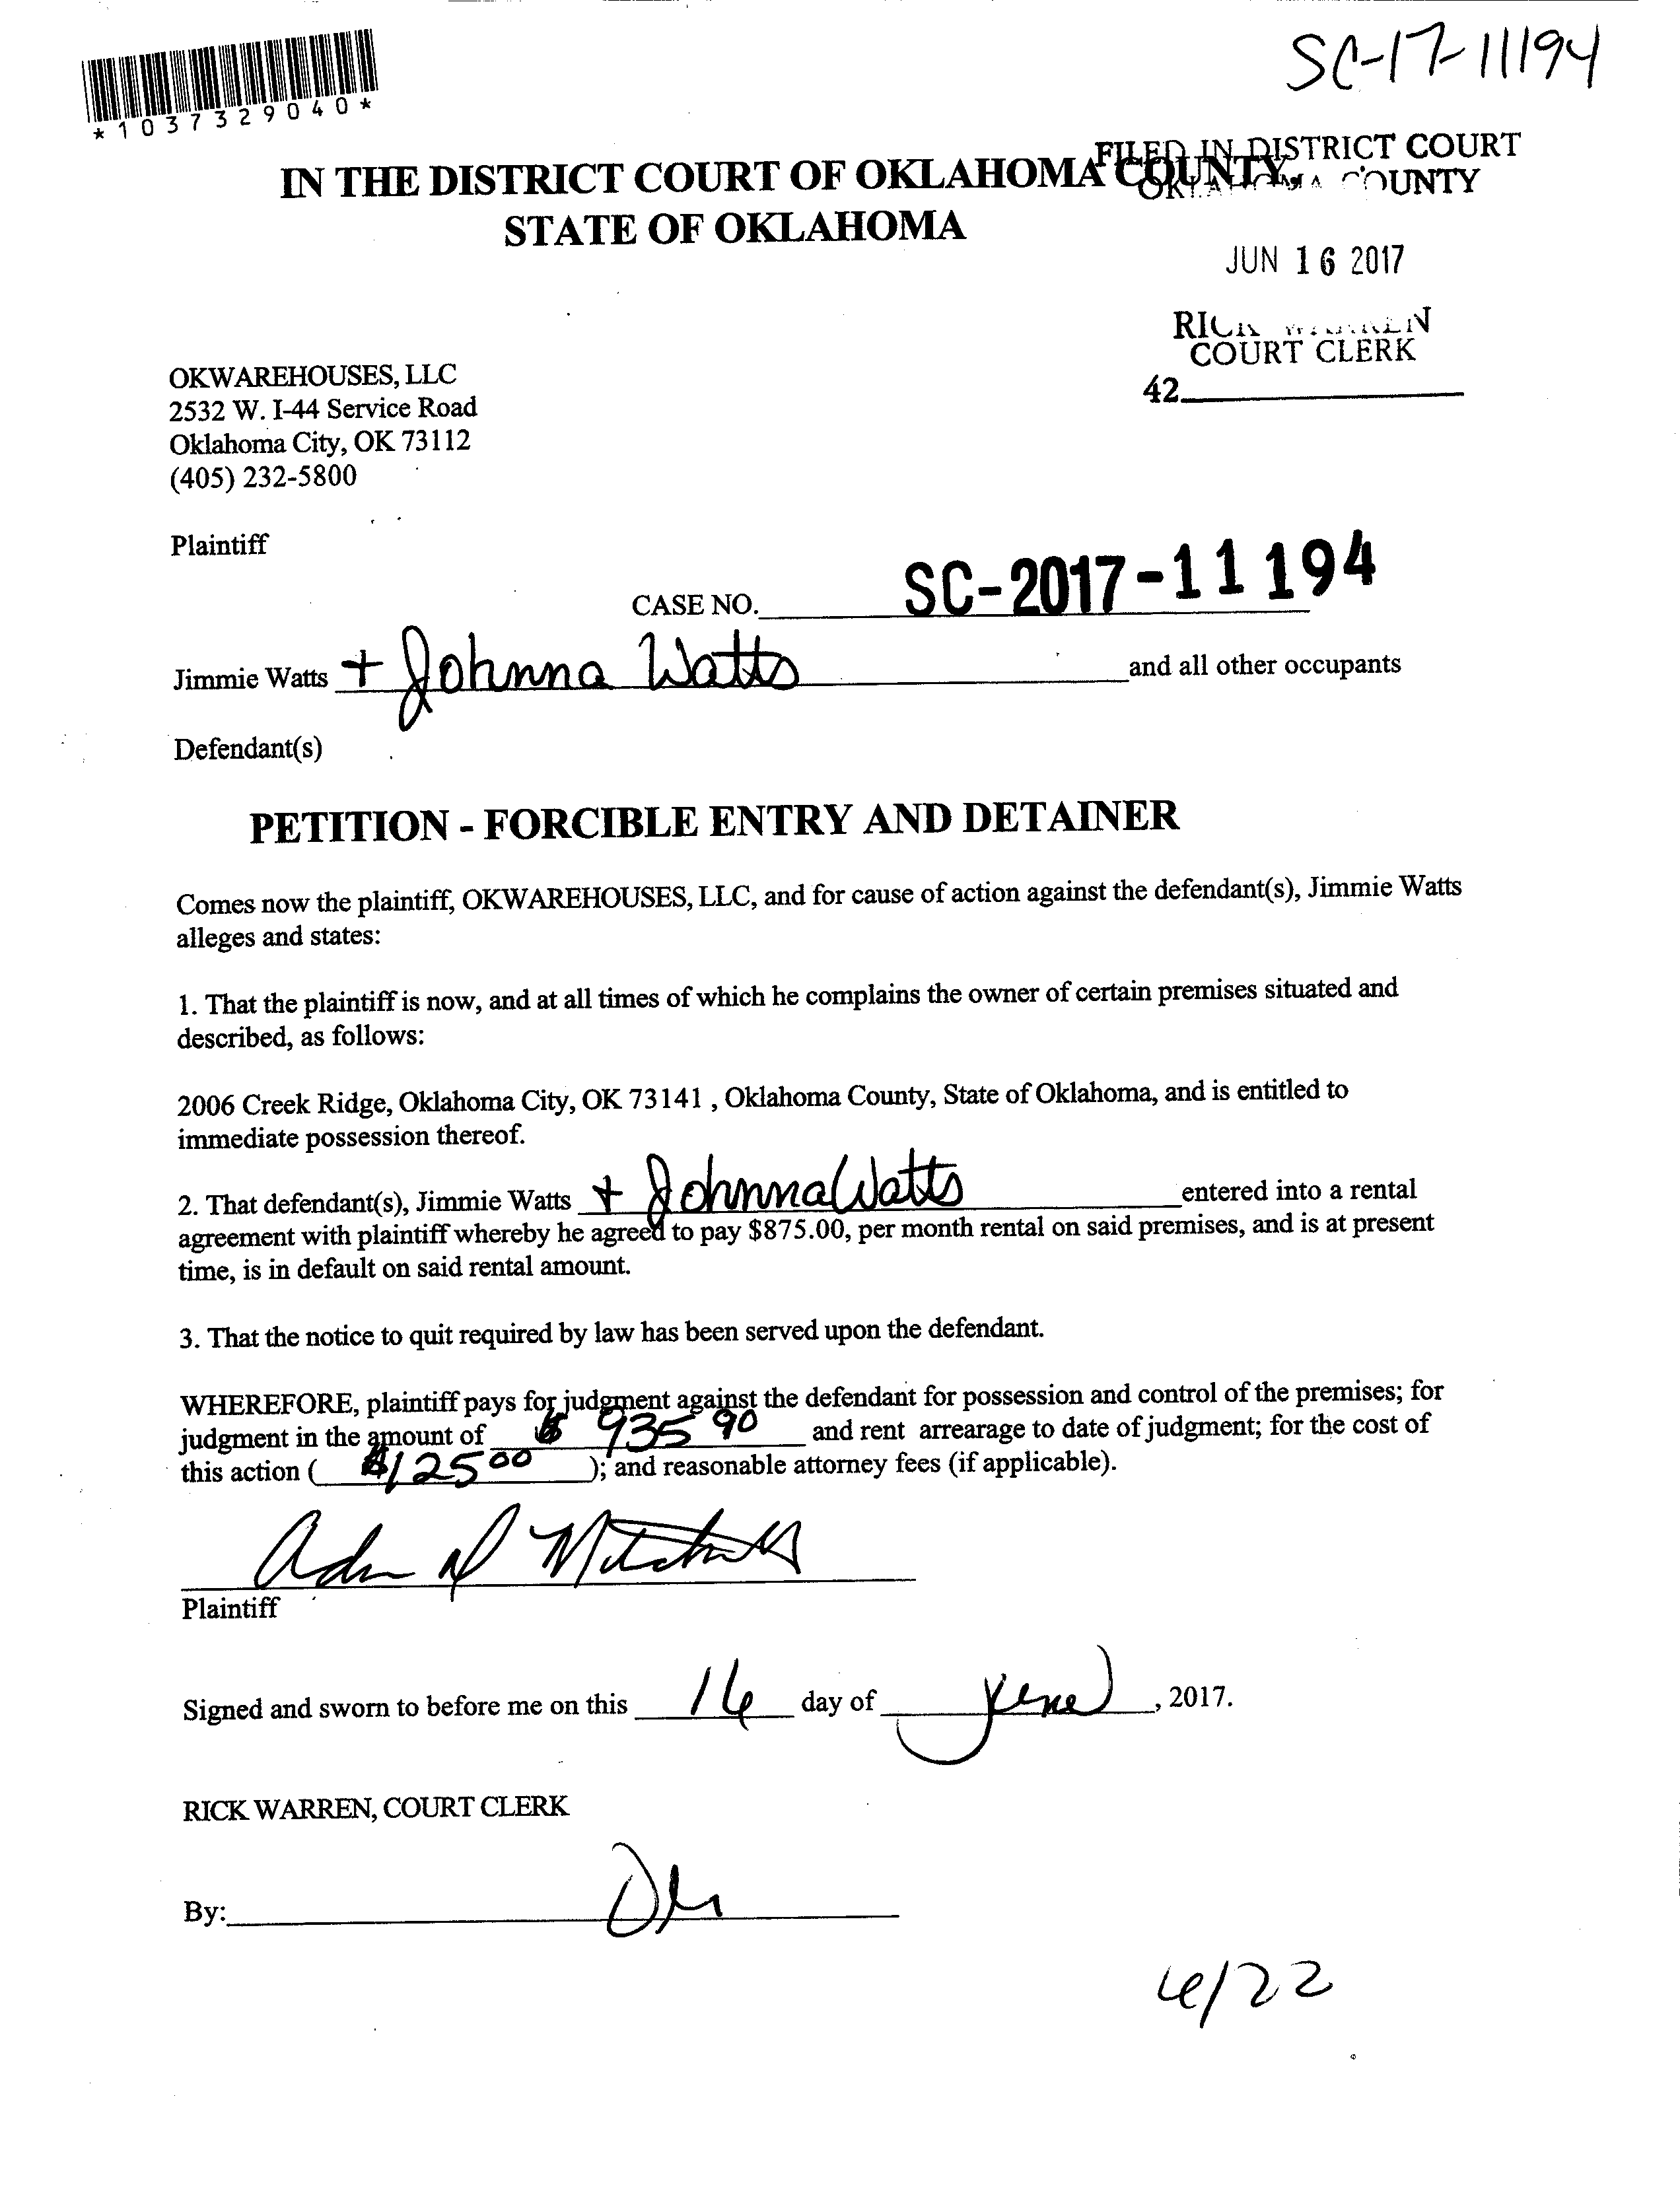 SC-17-11194
*1037329040*
FILED IN DISTRICT COURT
OKLAHOMA COUNTY
IN THE DISTRICT COURT OF OKLAHOMA COUNTY,
STATE OF OKLAHOMA
JUN 16 2017
RICK WARREN
COURT CLERK
42
OKWAREHOUSES, LLC
2532 W. I-44 Service Road
Oklahoma City, OK 73112
(405) 232-5800
Plaintiff
CASE NO. SC-2017-11194
Jimmie Watts + Johnna Watts and all other occupants
Defendant(s)
PETITION - FORCIBLE ENTRY AND DETAINER
Comes now the plaintiff, OKWAREHOUSES, LLC, and for cause of action against the defendant(s), Jimmie Watts
alleges and states:
1. That the plaintiff is now, and at all times of which he complains the owner of certain premises situated and
described, as follows:
2006 Creek Ridge, Oklahoma City, OK 73141 , Oklahoma County, State of Oklahoma, and is entitled to
immediate possession thereof.
2. That defendant(s), Jimmie Watts + Johnna Watts entered into a rental
agreement with plaintiff whereby he agreed to pay $875.00, per month rental on said premises, and is at present
time, is in default on said rental amount.
3. That the notice to quit required by law has been served upon the defendant.
WHEREFORE, plaintiff pays for judgment against the defendant for possession and control of the premises; for
judgment in the amount of $ 935 90 and rent arrearage to date of judgment; for the cost of
this action ( $125 00 ); and reasonable attorney fees (if applicable).
Plaintiff
Signed and sworn to before me on this 16 day of June, 2017.
RICK WARREN, COURT CLERK
By:
6/22